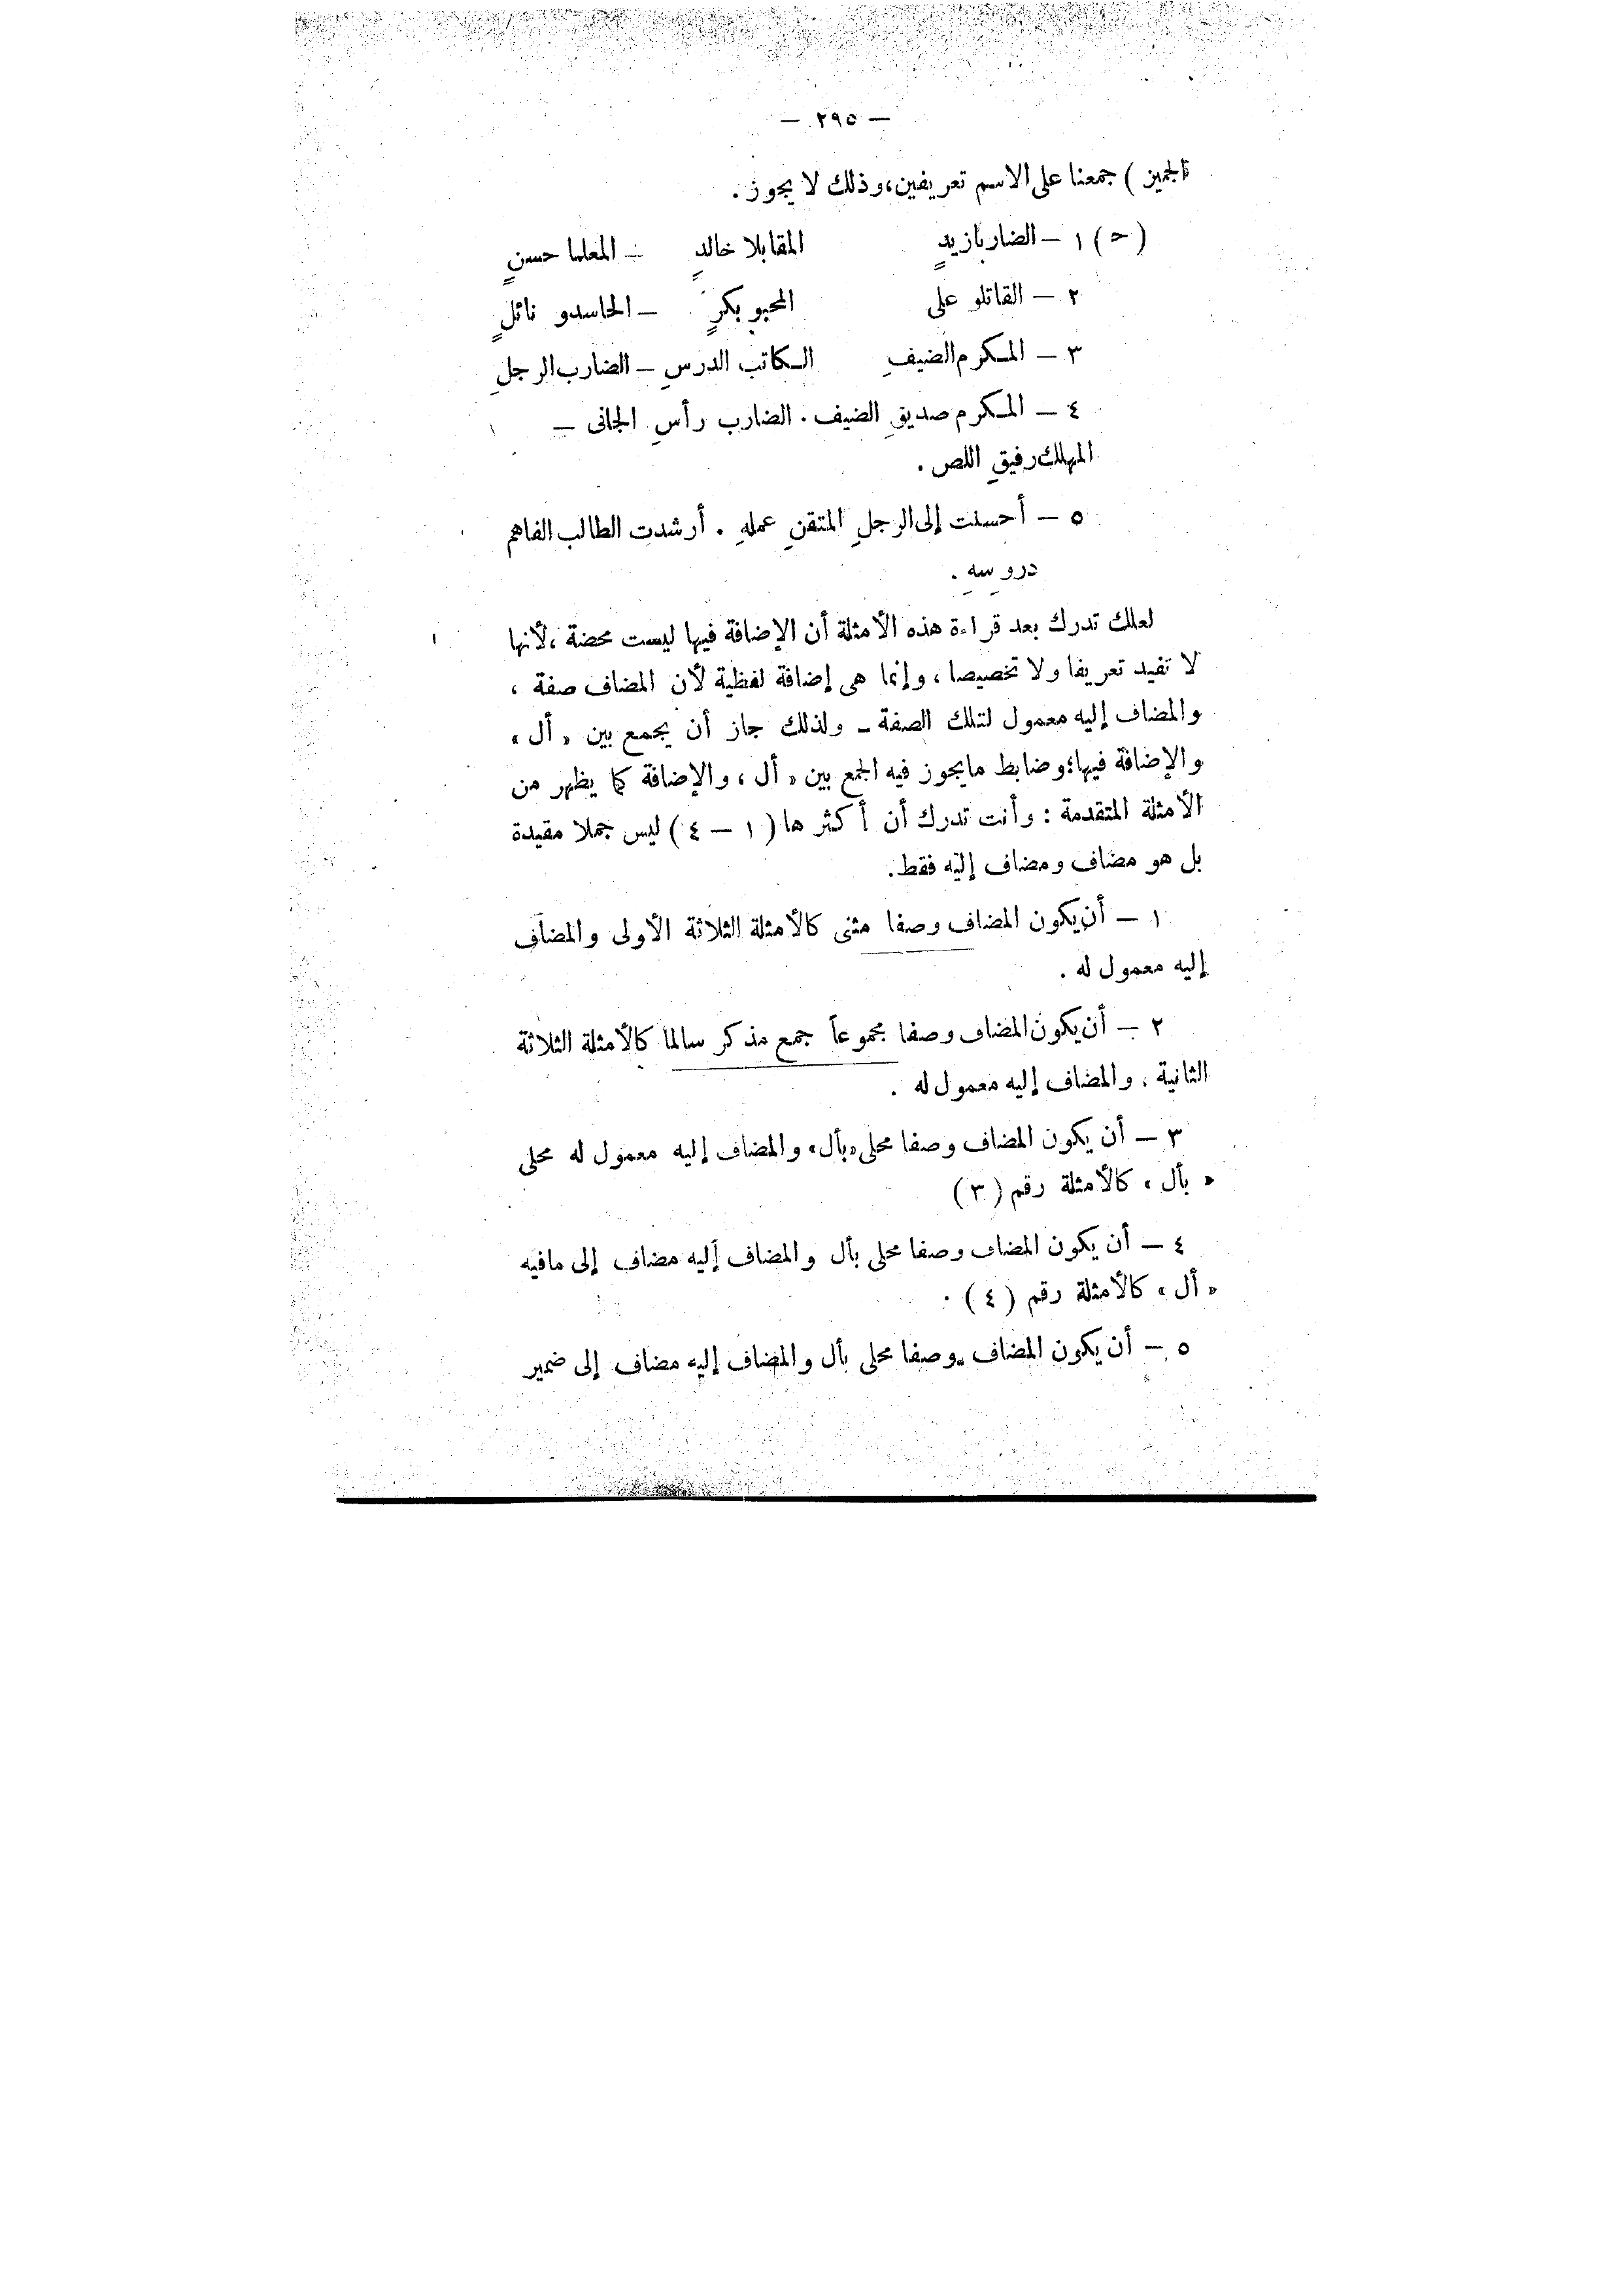 — ٢٩٥ —
الجميز ) جمعنا على الاسم تعريفين، وذلك لا يجوز .
( حـ ) ١ — الضاربا زيدٍ المقابلا خالدٍ — المعلما حسنٍ
٢ — القاتلو على المحبو بكرٍ — الحاسدو نائلٍ
٣ — المكرم الضيفِ الكاتب الدرسِ — الضارب الرجلِ
٤ — المكرم صديقِ الضيف . الضارب رأسِ الجانى —
المهلك رفيقِ اللص .
٥ — أحسنت إلى الرجلِ المتقنِ عملهِ . أرشدت الطالب الفاهم
دروسِهِ .
لعلك تدرك بعد قراءة هذه الأمثلة أن الإضافة فيها ليست محضة ، لأنها
لا تفيد تعريفا ولا تخصيصا ، وإنما هى إضافة لفظية لأن المضاف صفة ،
والمضاف إليه معمول لتلك الصفة ـ ولذلك جاز أن يجمع بين « أل »
والإضافة فيها؛ وضابط مايجوز فيه الجمع بين « أل ، والإضافة كما يظهر من
الأمثلة المتقدمة : وأنت تدرك أن أكثرها ( ١ — ٤ ) ليس جملا مقيدة
بل هو مضاف ومضاف إليه فقط.
١ — أن يكون المضاف وصفا مثنى كالأمثلة الثلاثة الأولى والمضاف
إليه معمول له .
٢ — أن يكون المضاف وصفا مجموعاً جمع مذكر سالما كالأمثلة الثلاثة
الثانية ، والمضاف إليه معمول له .
٣ — أن يكون المضاف وصفا محلى «بأل» والمضاف إليه معمول له محلى
« بأل » كالأمثلة رقم ( ٣ )
٤ — أن يكون المضاف وصفا محلى بأل والمضاف إليه مضاف إلى مافيه
« أل » كالأمثلة رقم ( ٤ ) .
٥ — أن يكون المضاف وصفا محلى بأل والمضاف إليه مضاف إلى ضمير